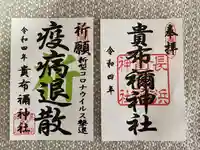 奉拝
貴布禰神社
令和四年
長浜
神社
祈願
新型コロナウイルス撃退
疫病退散
令和四年 貴布禰神社